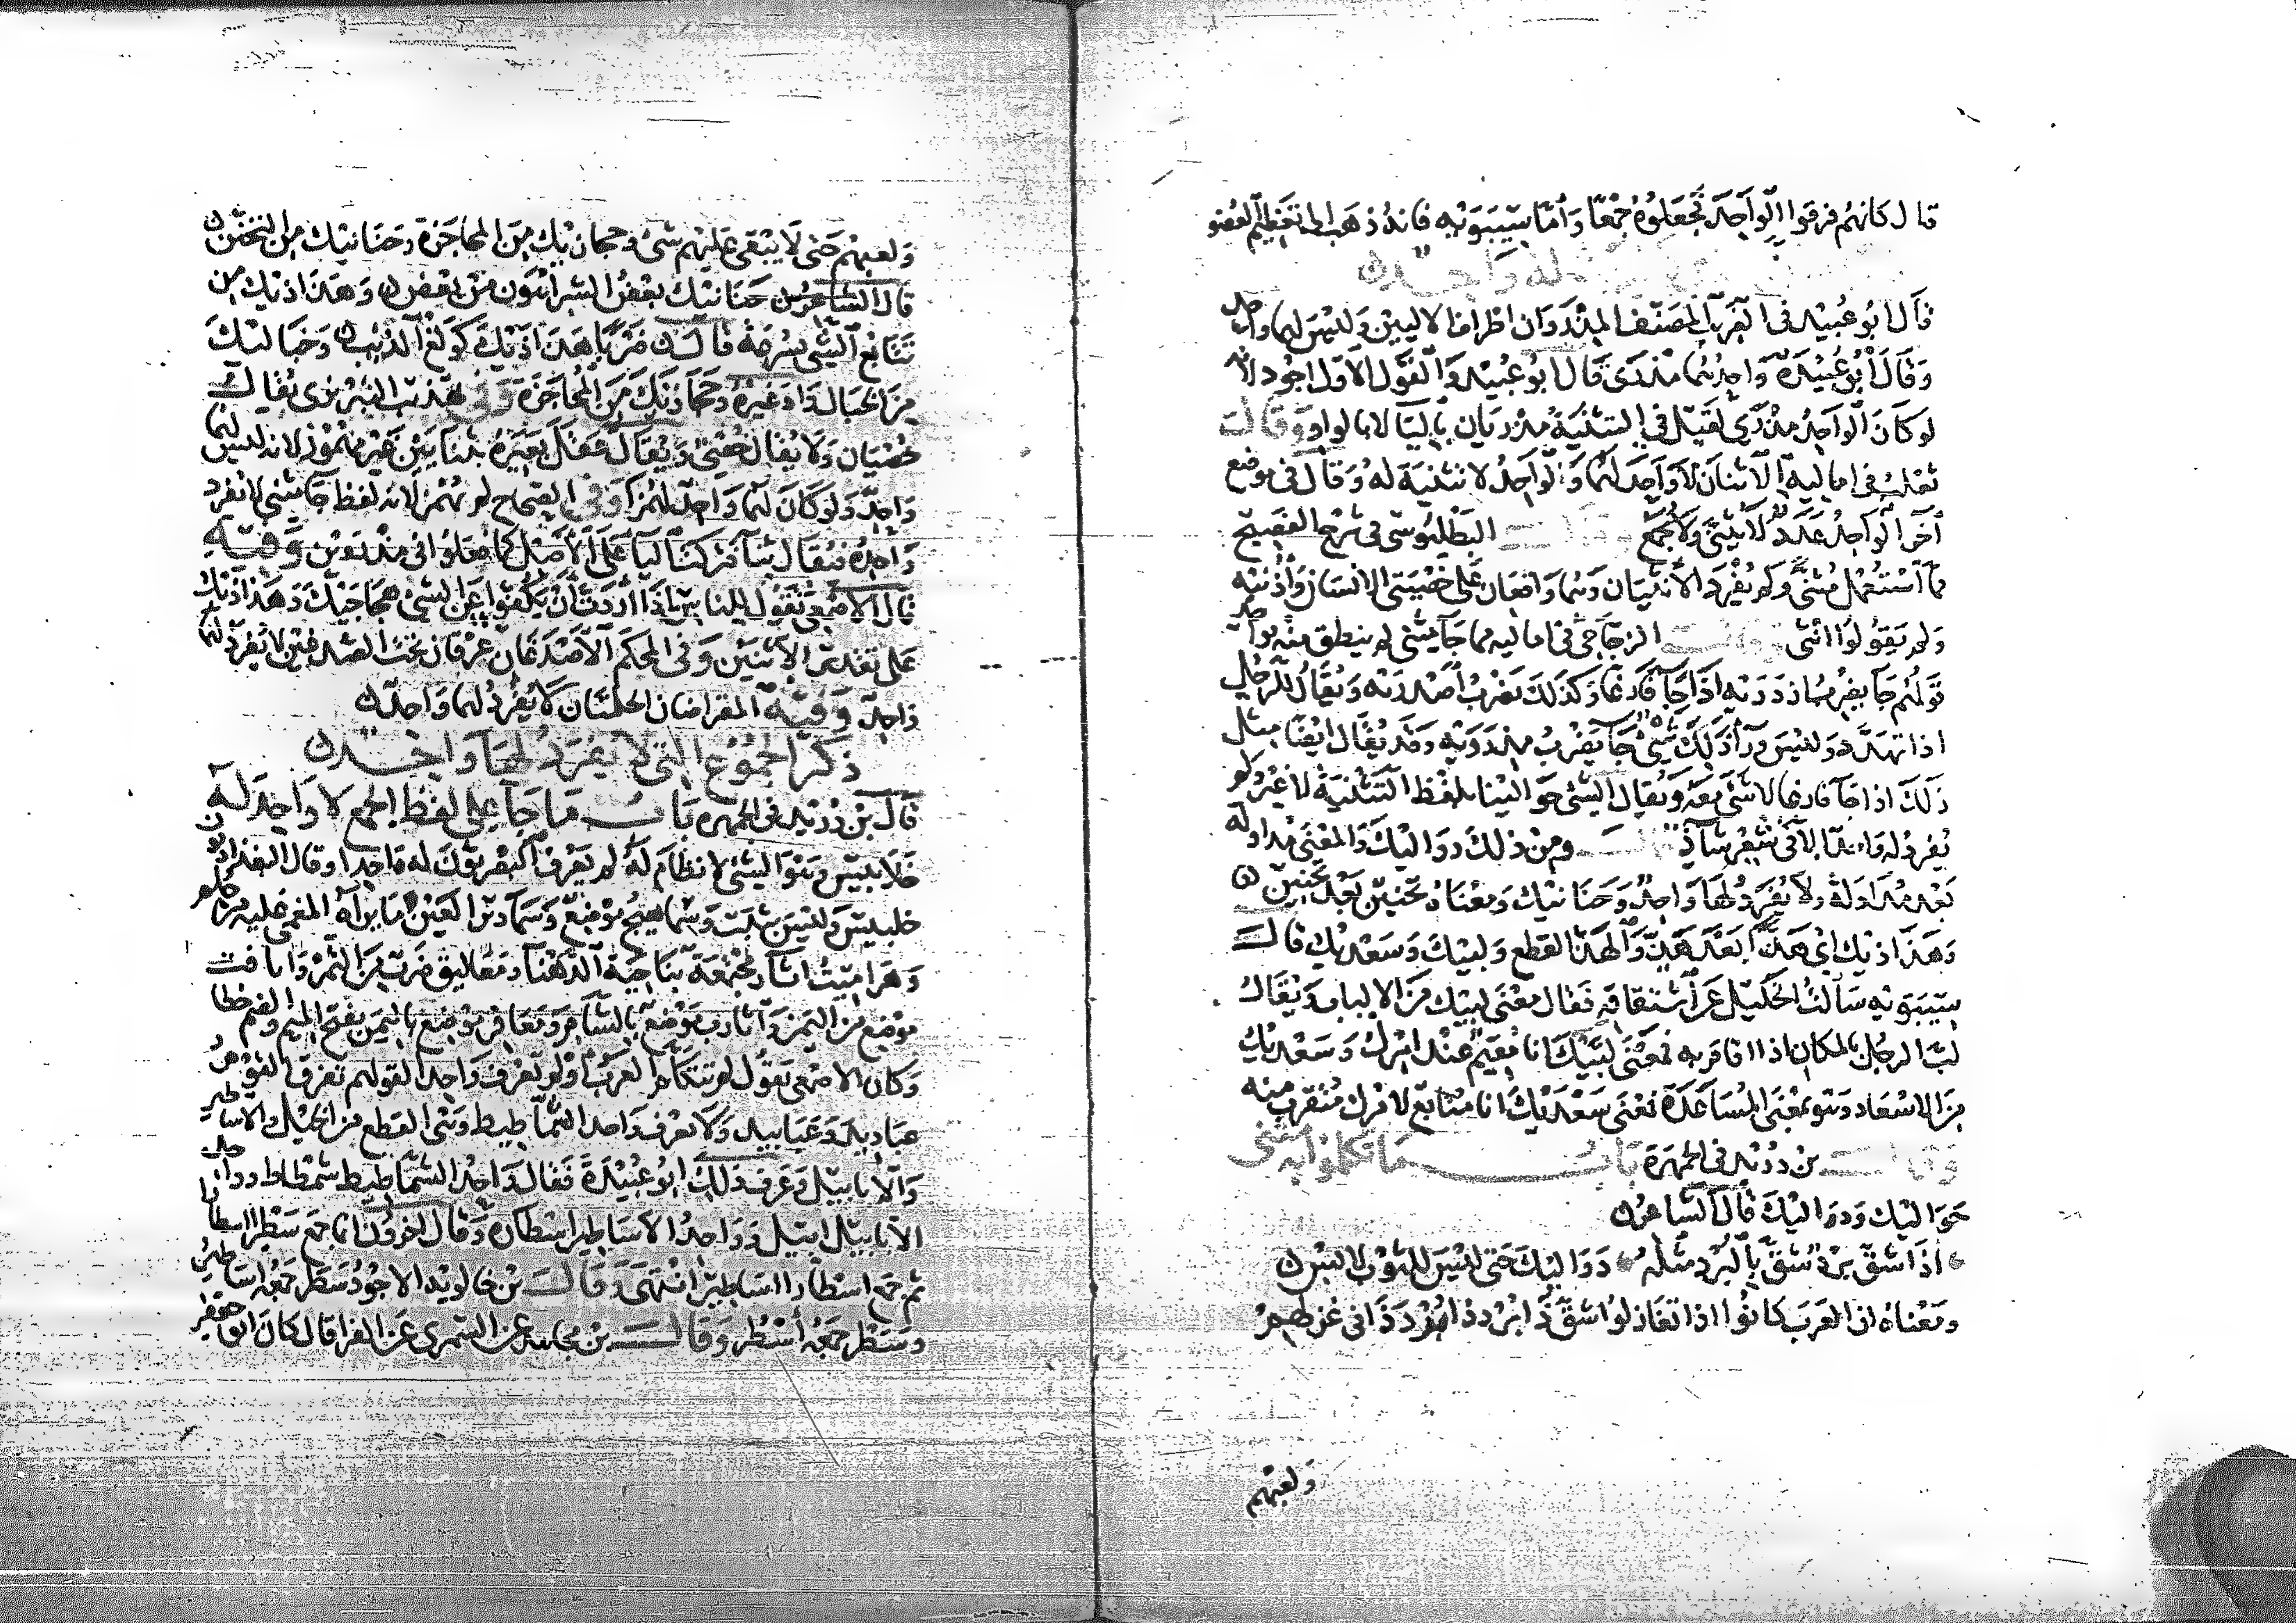 قال كانهم فرقوا الواحد فجعلوه جمعا واما سيبويه فانه ذهب الى تعظيم العضو
له واحد
قال ابو عبيد في الغريب المصنف المذروان اطراف الاليتين وليس لهما واحد
وقال ابو عبيدة واحدهما مذرى قال ابو عبيد والقول الاول اجود لانه
لو كان الواحد مذرى لقيل في التثنية مذريان باليا لا بالواو وقال
ثعلب في اماليه الاثنان لا واحد لهما والواحد لا تثنية له وقال في موضع
آخر الواحد عدد لا يثنى ولا يجمع وقال البطليوسي في شرح الفصيح
مما استعمل مثنى ولم يفرد الانثيان وهما واقعان على خصيتي الانسان واذنيه
ولم يقولوا انثى وقال الزجاجي في اماليه مما جا مثنى لم ينطق منه بواحد
قولهم جا يضرب ازدريه اذا جا فارغا وكذلك يضرب اصدريه ويقال للرجل
اذا تهدد وليس ورا ذلك شي جا يضرب مذرويه وقد يقال ايضا مثل
ذلك اذا جا فارغا لا شي معه ويقال الشي حوالينا بلفظ التثنية لا غير ولم
يفرد له واحد الا في شعر شاذ ومن ذلك دواليك والمعنى مداولة
بعد مداولة ولا يفرد لها واحد وحنانيك ومعناه تحنين بعد تحنين
وهذاذيك اي هذا بعد هذ والهذ القطع ولبيك وسعديك قال
سيبويه سالت الخليل عن اشتقاقه فقال معنى لبيك من الالباب ويقال
لب الرجل بالمكان اذا اقام به فمعنى لبيك انا مقيم عند امرك وسعديك
من الاسعاد وهو بمعنى المساعدة فمعنى سعديك انا متابع لامرك متقرب منه
وقال بن دريد في الجمهرة باب ما تكلموا به مثنى
حواليك ودواليك قال الشاعر
اذا شق برد شق بالبرد مثله دواليك حتى ليس للثوب لابس
ومعناه ان العرب كانوا اذا تغازلوا شق ذا برد ذا وذا برد ذا في غزلهم
ولعبهم
ولعبهم حتى لا يبقى عليهم شي وحجازيك من المحاجزة وحنانيك من التحنن
قال الشاعر حنانيك بعض الشر اهون من بعض وهذاذيك من
تتابع الشي بسرعة قال ضربا هذاذيك كولغ الذيب وخباليك
من الخبال وغيره وحجازيك من المحاجزة وفي تهذيب التبريزي يقال
خصيان ولا يقال خصي ويقال عقل بعيره بثنايين غير مهموز لانه ليس لهما
واحد ولو كان لهما واحد لهمز وفي الصحاح لم يهمز لانه لفظ جا مثنى لا يفرد
واحده فيقال ثنا فتركت اليا على الاصل كما فعلوا في مذروين وفيه
قال الاصمعي تقول للناس اذا اردت ان يكفوا عن الشي هجاجيك وهذاذيك
على تقدير الاثنين وفي المحكم الاصدغان عرقان تحت الصدغين لا يفرد لهما
واحد وفيه المقراضان الجلمان لا يفرد لهما واحد
ذكر الجموع التي لا يفرد لها واحد
قال بن دريد في الجمهرة باب ما جا على لفظ الجمع لا واحد له
خلابيس وهو الشي لا نظام له لم يعرف البصريون له واحدا وقال البغداديون
خلبيس وليس بثبت وسماهيج موضع وسمادير العين ما يراه المغمى عليه من حلم
وهراميت ابار مجتمعة بناحية الدهنا ومعاليق ضرب من التمر واثافت
موضع من اليمن واثارب موضع بالشام ومعافر موضع باليمن بفتح الميم والضم خطا
وكان الاصمعي يقول لم تتكلم العرب او لم تعرف واحدا لقولهم تفرق القوم
عباديد وعبابيد ولا تعرف واحد الشماطيط وهي القطع من الخيل والاساطير
والابابيل وعرف ذلك ابو عبيدة فقال واحد الشماطيط شمطاط وواحد
الابابيل ابيل وواحد الاساطير اسطارة وقال اخرون انما جمع سطر اسطارا
ثم جمع اسطار اساطير انتهى وقال بن خالويه الاجود سطر جمعه اساطير
وسطر جمعه اسطر وقال بن مجاهد عن السمري عن الفرا قال كان ابو جعفر